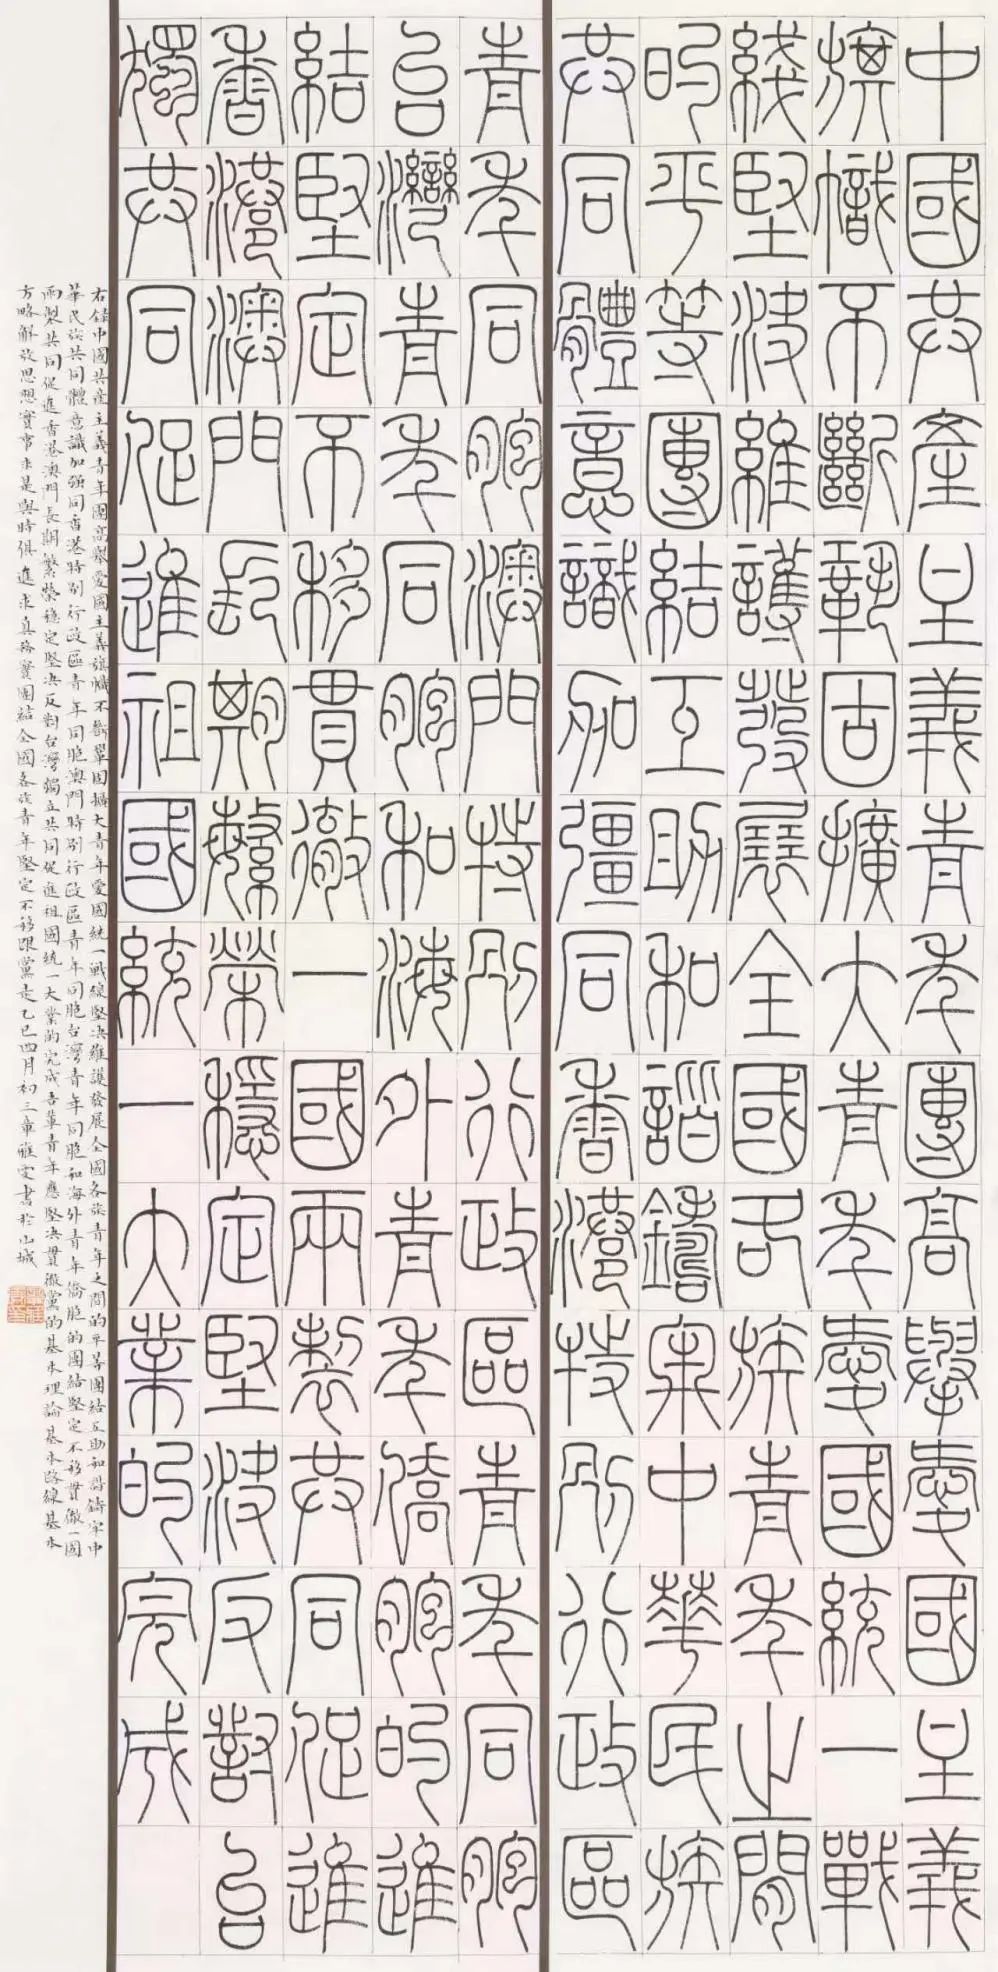 中國共產主義青年團高舉愛國主義
旗幟不斷鞏固擴大青年愛國統一戰
綫堅決維護發展全國各族青年之間
的平等團結互助和諧鑄牢中華民族
共同體意識加彊同香港特別行政區
青年同胞澳門特別行政區青年同胞
台灣青年同胞和海外青年僑胞的進
結堅定不移貫徹一國兩製共同促進
香港澳門長期繁榮穩定堅決反對台
獨共同促進祖國統一大業的完成
右錄中國共產主義青年團高舉愛國主義旗幟不斷鞏固擴大青年愛國統一戰線堅決維護發展全國各族青年之間的平等團結互助和諧鑄牢中
華民族共同體意識加強同香港特別行政區青年同胞澳門特別行政區青年同胞台灣青年同胞和海外青年僑胞的團結堅定不移貫徹一國
兩製共同促進香港澳門長期繁榮穩定堅決反對台灣獨立共同促進祖國統一大業的完成吾輩青年應堅決貫徹黨的基本理論基本路線基本
方略解放思想實事求是與時俱進求真務實團結全國各族青年堅定不移跟黨走乙巳四月初三章雅雯書於山城